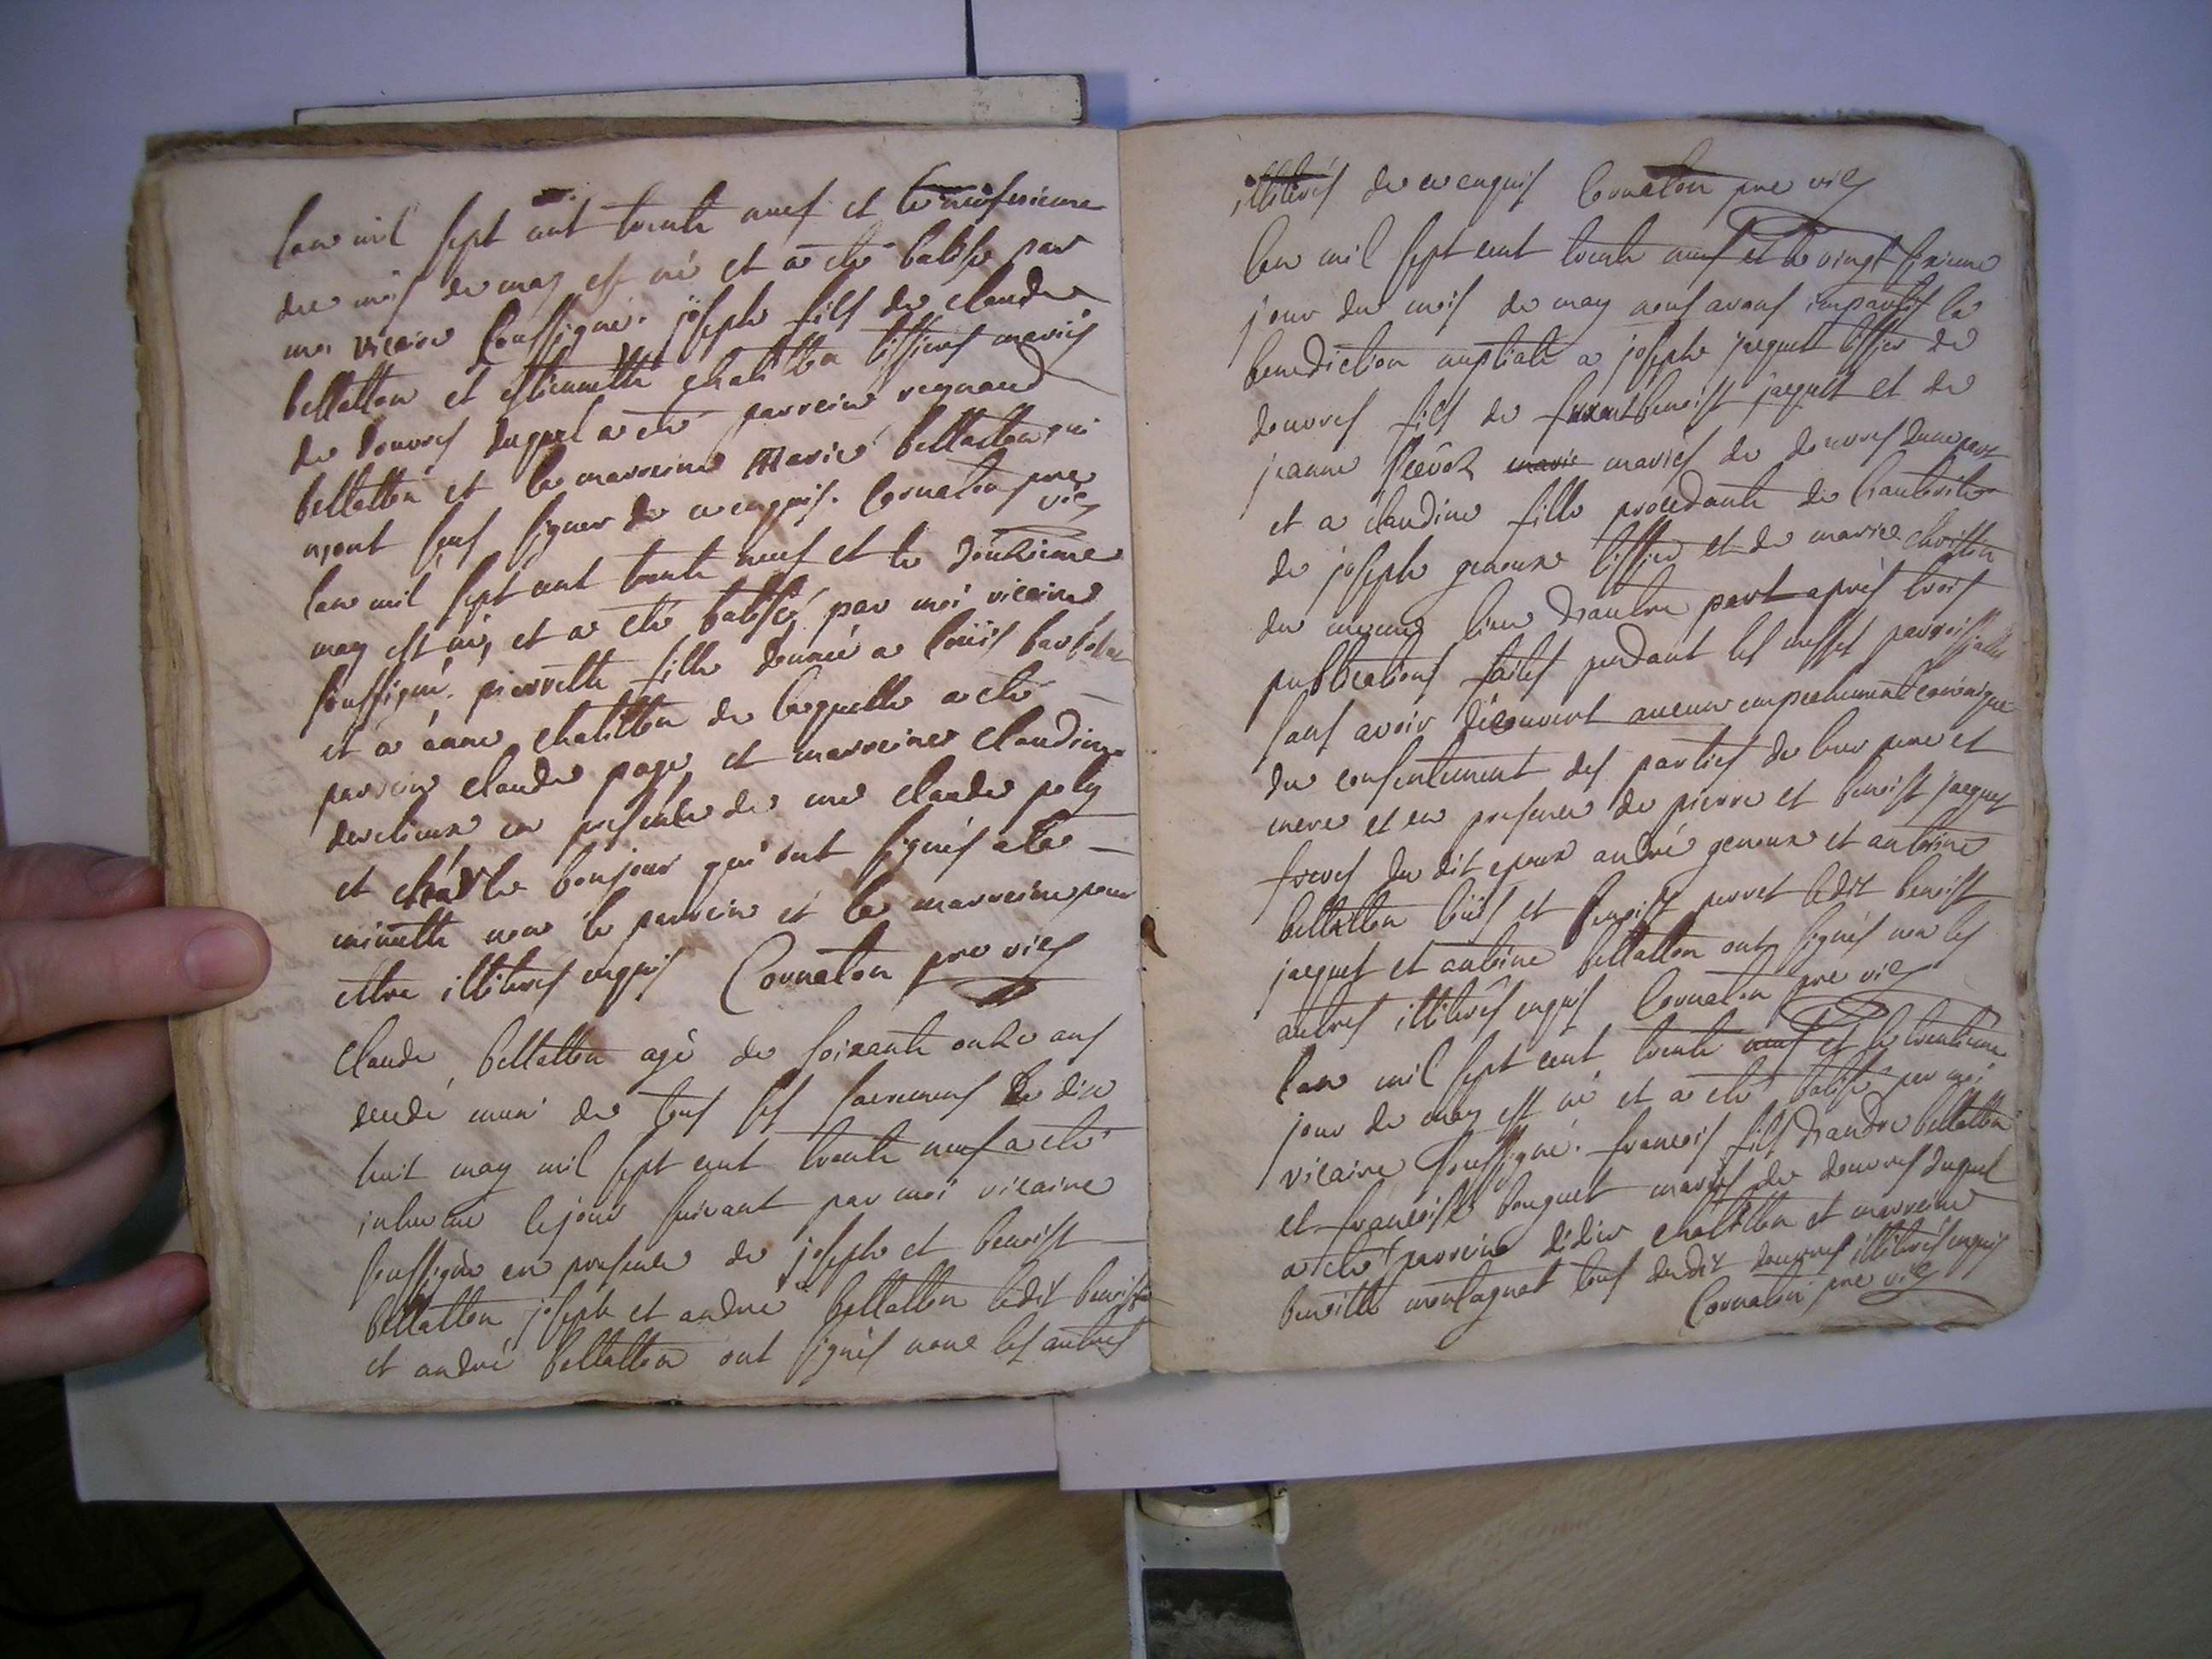 lan mil sept cent trente neuf et le neufvieme
du mois de may est né et a eté batisé par
moi vicaire soussigné. joseph fils de claude
bellatton et estiennette chatillon tissiers mariés
de douvres duquel a eté parrein reynaud
bellatton et la marreine Marie bellatton qui
n'ont seus signer de ce enquis. Cornaton pre
vic
lan mil sept cent trente neuf et le douzieme
may est né, et a eté batisé par moi vicaire
soussigné. pierrette fille donnée a louis
et a anne chatillon de laquelle a eté
parrein claude page et marreine claudine
en presence de me claude poly
et charle bonjour qui ont signés a la
minutte non le parrein et la marreine pour
estre illiterés enquis Cornaton pre vic
Claude bellatton agé de soixante onze ans
decedé muni de tous les sacremens le dix
huit may mil sept cent trente neuf a eté
inhumé le jour suivant par moi vicaire
soussigné en presence de joseph et benoist
bellatton joseph et andré bellatton ledit benoist
et andré bellatton ont signés none les autres
illiterés de ce enquis Cornaton pre vic
lan mil sept cent trente neuf et le vingt sixieme
jour du mois de may nous avons impartis la
benediction nuptiale a joseph jaquet tissier de
douvres fils de benoist jaquet et de
jeanne mariés de douvres dune part
et a claudine fille procedante de
de joseph genoux tissier et de marie
du meme lieu d'autre part apres trois
publications faites pendant les messes parroissialles
sans avoir découvert aucun empechement canonique
du consentement des parties de leur pere et
mere et en presence de pierre et benoist jaquet
freres du dit epoux andré genoux et antoine
bellatton louis et benoist perret ledit benoist
jaquet et antoine bellatton ont signés non les
autres illiterés enquis Cornaton pre vic
lan mil sept cent trente neuf et le trentieme
jour de may est né et a eté batisé par moi
vicaire soussigné. francois fils d'andre bellatton
et francoise bouquet mariés de douvres duquel
a eté parrein didier chatillon et marreine
benoitte montagnat tous dudit douvres illiterés enquis
Cornaton pre vic